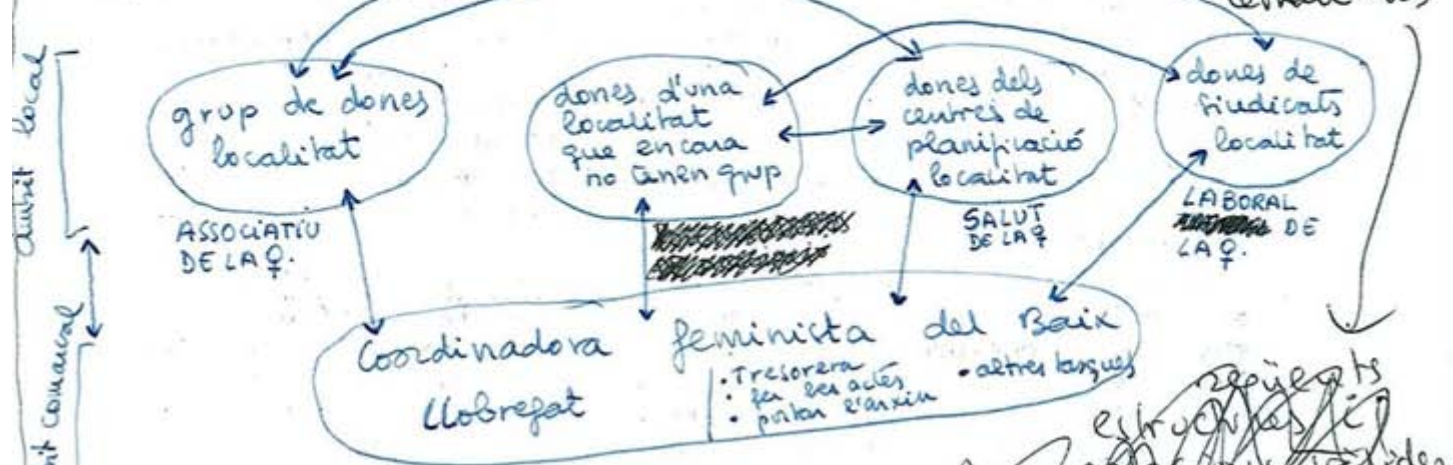 àmbit local
grup de dones
localitat
ASSOCIATIU
DE LA ♀.
dones d'una
localitat
que encara
no tenen grup
dones dels
centres de
planificació
localitat
SALUT
DE LA ♀
dones de
sindicats
localitat
LABORAL
DE
LA ♀.
comarcal
Coordinadora feminista del Baix
Llobregat
• Tresorera
• fer les actes
• portar l'arxiu
• altres tasques
següents